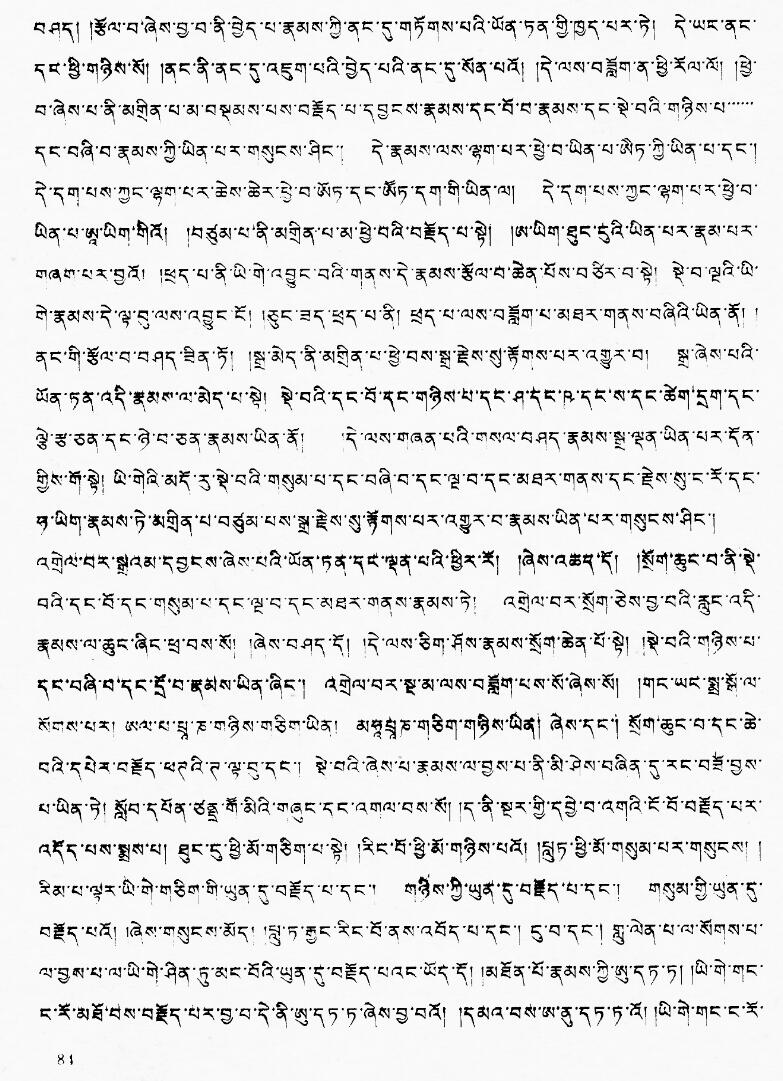 བཤད། །རྩོལ་བ་ཞེས་བྱ་བ་ནི་བྱེད་པ་རྣམས་ཀྱི་ནང་དུ་གཏོགས་པའི་ཡོན་ཏན་གྱི་ཁྱད་པར་ཏེ། དེ་ཡང་ནང་
དང་ཕྱི་གཉིས་སོ། །ནང་ནི་ནང་དུ་འཇུག་པའི་བྱེད་པའི་ནང་དུ་སོན་པའོ། །དེ་ལས་བཟློག་ན་ཕྱི་རོལ་ལོ། །ཕྱེ་
བ་ཞེས་པ་ནི་མགྲིན་པ་མ་བསྡམས་པས་བརྗོད་པ་དབྱངས་རྣམས་དང་པོ་བ་རྣམས་དང་སྡེ་བའི་གཉིས་པ་་་་་་
དང་བཞི་བ་རྣམས་ཀྱི་ཡིན་པར་གསུངས་ཤིང༌། དེ་རྣམས་ལས་ལྷག་པར་ཕྱེ་བ་ཡིན་པ་ཨེཏ་ཀྱི་ཡིན་པ་དང༌།
དེ་དག་པས་ཀྱང་ལྷག་པར་ཆེས་ཆེར་ཕྱེ་བ་ཨོཏ་དང་ཨཽཏ་དག་གི་ཡིན་ལ། དེ་དག་པས་ཀྱང་ལྷག་པར་ཕྱེ་བ་
ཡིན་པ་ཨཱ་ཡིག་གིའོ། །བཙུམ་པ་ནི་མགྲིན་པ་མ་ཕྱེ་བའི་བརྗོད་པ་སྟེ། །ཨ་ཡིག་ཐུང་ངུའི་ཡིན་པར་རྣམ་པར་
གཞག་པར་བྱའོ། །ཕྲད་པ་ནི་ཡི་གེ་འབྱུང་བའི་གནས་དེ་རྣམས་རྩོལ་བ་ཆེན་པོས་བཙིར་བ་སྟེ། སྡེ་བ་ལྔའི་ཡི་
གེ་རྣམས་དེ་ལྟ་བུ་ལས་འབྱུང་ངོ། །ཅུང་ཟད་ཕྲད་པ་ནི། ཕྲད་པ་ལས་བཟློག་པ་མཐར་གནས་བཞིའི་ཡིན་ནོ། །
ནང་གི་རྩོལ་བ་བཤད་ཟིན་ཏོ། །སྒྲ་མེད་ནི་མགྲིན་པ་ཕྱེ་བས་སྒྲ་རྗེས་སུ་རྟོགས་པར་འགྱུར་བ། སྒྲ་ཞེས་པའི་
ཡོན་ཏན་འདི་རྣམས་ལ་མེད་པ་སྟེ། སྡེ་བའི་དང་པོ་དང་གཉིས་པ་དང་ཤ་དང་ཥ་དང་ས་དང་ཚེག་དྲག་དང་
ལྕེ་རྩ་ཅན་དང་ཉེ་བ་ཅན་རྣམས་ཡིན་ནོ། །དེ་ལས་གཞན་པའི་གསལ་བཤད་རྣམས་སྒྲ་ལྡན་ཡིན་པར་དོན་
གྱིས་གོ་སྟེ། ཡི་གེའི་མདོ་རུ་སྡེ་བའི་གསུམ་པ་དང་བཞི་བ་དང་ལྔ་བ་དང་མཐར་གནས་དང་རྗེས་སུ་ང་རོ་དང་
ཧ་ཡིག་རྣམས་ཏེ་མགྲིན་པ་བཙུམ་པས་སྒྲ་རྗེས་སུ་རྟོགས་པར་འགྱུར་བ་རྣམས་ཡིན་པར་གསུངས་ཤིང༌།
འགྲེལ་བར་སྒྲའམ་དབྱངས་ཞེས་པའི་ཡོན་ཏན་དང་ལྡན་པའི་ཕྱིར་རོ། །ཞེས་འཆད་དོ། །སྲོག་ཆུང་བ་ནི་སྡེ་
བའི་དང་པོ་དང་གསུམ་པ་དང་ལྔ་བ་དང་མཐར་གནས་རྣམས་ཏེ། འགྲེལ་བར་སྲོག་ཅེས་བྱ་བའི་རླུང་འདི་
རྣམས་ལ་ཆུང་ཞིང་ཕྲ་བས་སོ། །ཞེས་བཤད་དོ། །དེ་ལས་ཅིག་ཤོས་རྣམས་སྲོག་ཆེན་པོ་སྟེ། །སྡེ་བའི་གཉིས་པ་
དང་བཞི་བ་དང་དྲོ་བ་རྣམས་ཡིན་ཞིང༌། འགྲེལ་བར་སྔ་མ་ལས་བཟློག་པས་སོ་ཞེས་སོ། །གང་ཡང་སྨྲ་སྒོ་ལ་
སོགས་པར། ཨལ་པ་པྲཱ་ཎ་གཉིས་གཅིག་ཡིན། མཧཱ་པྲཱ་ཎ་གཅིག་གཉིས་ཡིན། ཞེས་དང༌། སྲོག་ཆུང་བ་དང་ཆེ་
བའི་དཔེར་བརྗོད་ལྟ་བུ་དང༌། སྡེ་བའི་ཞེས་པ་རྣམས་ལ་བྱས་པ་ནི་མི་ཤེས་བཞིན་དུ་རང་བཟོ་བྱས་
པ་ཡིན་ཏེ། སློབ་དཔོན་ཙནྡྲ་གོ་མིའི་གཞུང་དང་འགལ་བས་སོ། །ད་ནི་སྔར་གྱི་དབྱེ་བ་འགའི་ངོ་བོ་བརྗོད་པར་
འདོད་པས་སྨྲས་པ། ཐུང་ངུ་ཕྱི་མོ་གཅིག་པ་སྟེ། །རིང་པོ་ཕྱི་མོ་གཉིས་པའོ། །པླུཏ་ཕྱི་མོ་གསུམ་པར་གསུངས། །
རིམ་པ་ལྟར་ཡི་གེ་གཅིག་གི་ཡུན་དུ་བརྗོད་པ་དང༌། གཉིས་ཀྱི་ཡུན་དུ་བརྗོད་པ་དང༌། གསུམ་གྱི་ཡུན་དུ་
བརྗོད་པའོ། །ཞེས་གསུངས་མོད། །པླུ་ཏ་རྒྱང་རིང་པོ་ནས་འབོད་པ་དང༌། ངུ་བ་དང༌། གླུ་ལེན་པ་ལ་སོགས་པ་
ལ་བྱས་པ་ལ་ཡི་གེ་ཤིན་ཏུ་མང་པོའི་ཡུན་དུ་བརྗོད་པའང་ཡོད་དོ། །མཐོན་པོ་རྣམས་ཀྱི་ཨུ་དཏ་ཏ། །ཡི་གེ་གང་
ང་རོ་མཐོ་བས་བརྗོད་པར་བྱ་བ་དེ་ནི་ཨུ་དཏ་ཏ་ཞེས་བྱ་བའོ། །དམའ་བས་ཨ་ནུ་དཏ་ཏ་འོ། །ཡི་གེ་གང་ང་རོ་
84